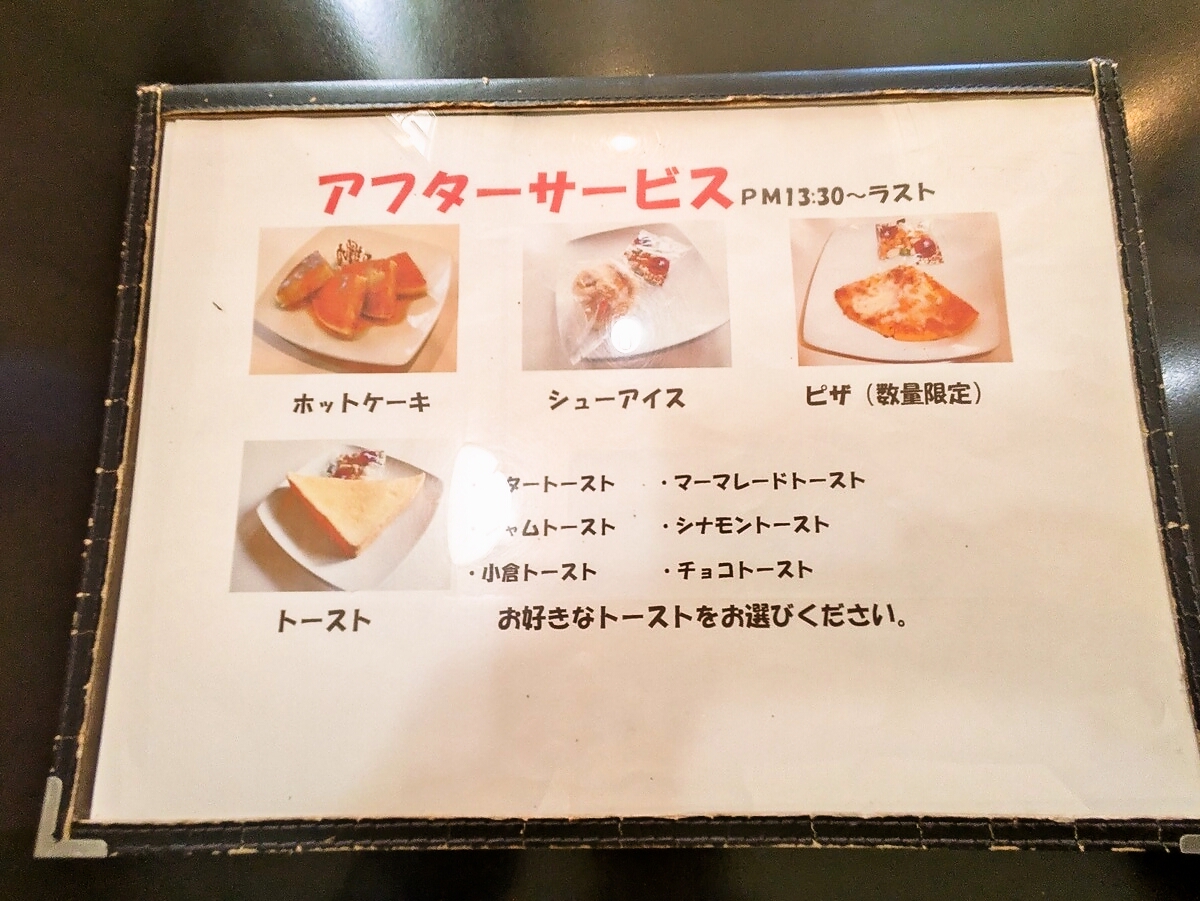 アフターサービス PM13:30～ラスト
ホットケーキ
シューアイス
ピザ（数量限定）
タートースト ・マーマレードトースト
ャムトースト ・シナモントースト
・小倉トースト ・チョコトースト
トースト
お好きなトーストをお選びください。